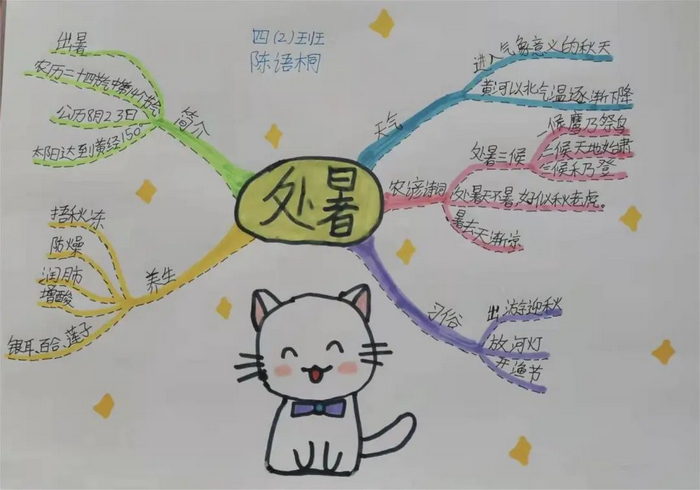 四(2)班
陈语桐
处暑
简介
出暑
农历二十四节气中第14个节气
公历8月23日
太阳达到黄经150°
天气
进入气象意义的秋天
黄河以北气温逐渐下降
农谚诗词
处暑三候
一候鹰乃祭鸟
二候天地始肃
三候禾乃登
处暑天不暑,好似秋老虎。
暑去天渐凉
养生
捂秋冻
防燥
润肺
增酸
银耳百合、莲子
习俗
出游迎秋
放河灯
开渔节